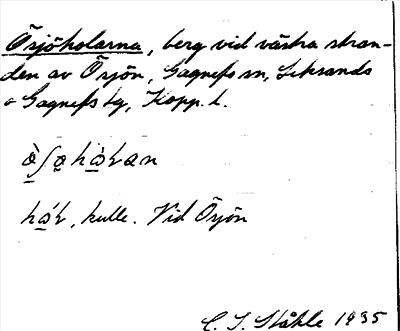 Örsjöholarna, berg vid västra stran-
den av Örsjön, Gagnefs sn, Leksands
o Gagnefs tg, Kopp. l.
kulle. Vid Örjön
C. I. Ståhle 1935